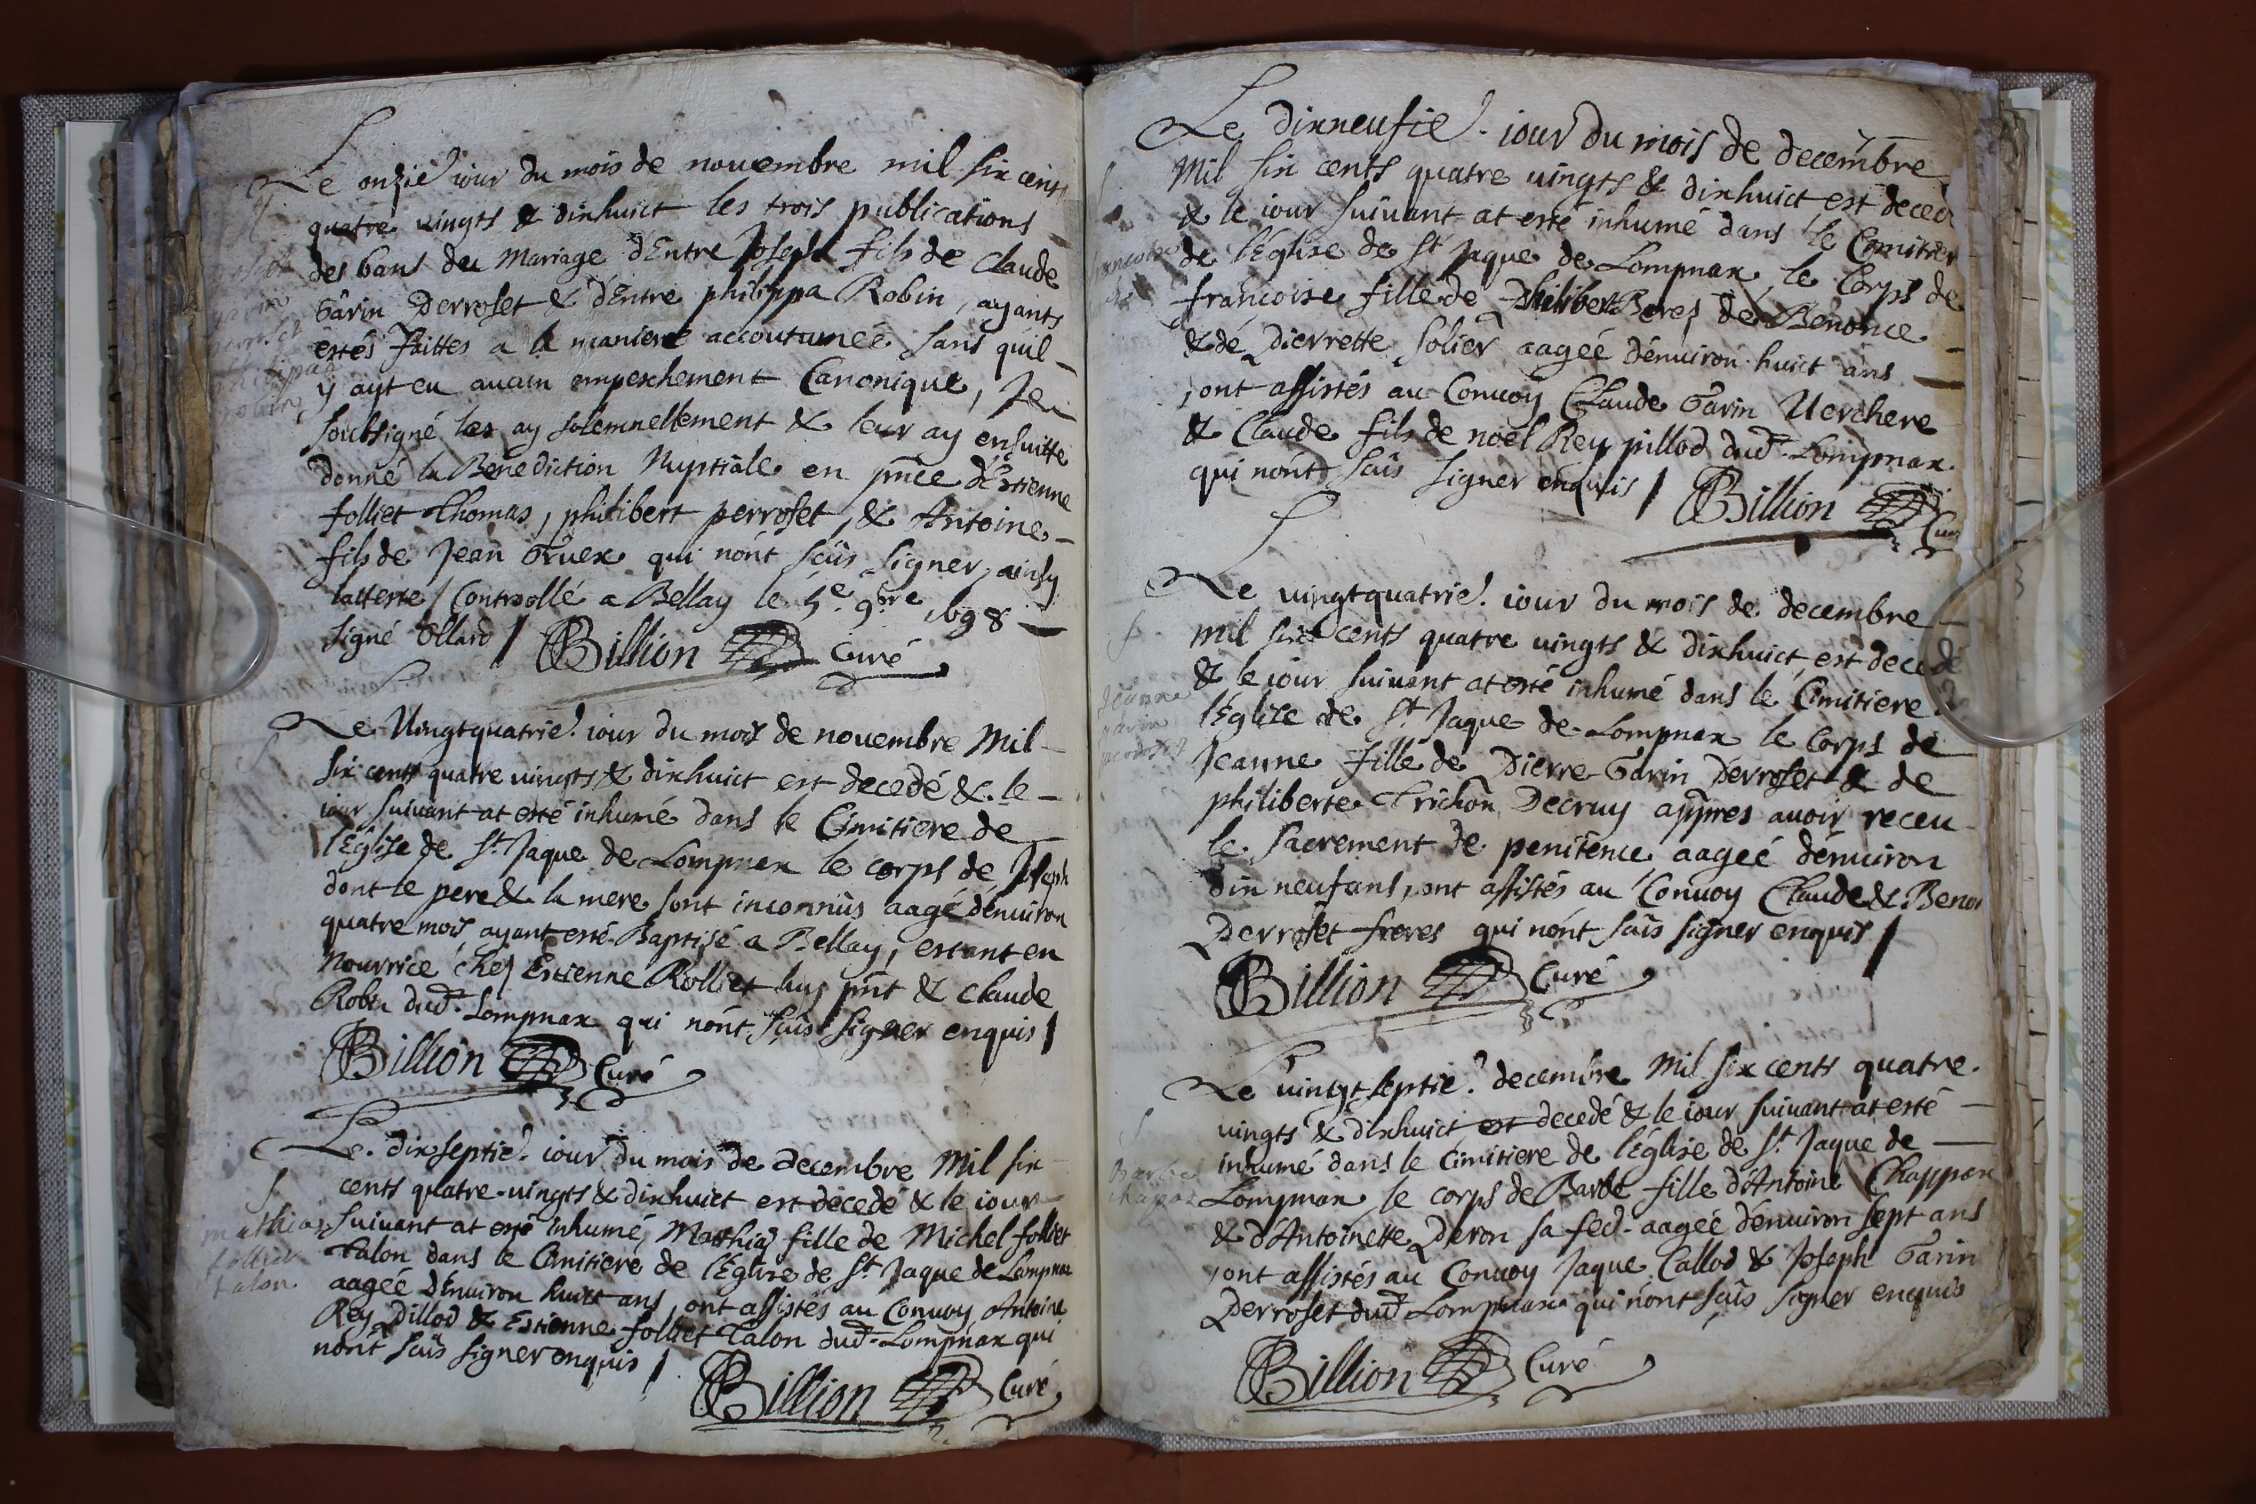 Le onzie. iour du mois de nouembre mil six cents
quatre vingts & dixhuict les trois publications
des bans du Mariage d'Entre Joseph fils de Claude
Garin Perroset & d'Entre philippa Robin, ayants
estés faittes a la maniere accoutumeé sans quil
y ayt eu aucun empeschement Canonique, Je
soubsigné les ay solemnellement & leur ay ensuitte
donné la Benediction Nuptiale en pnce d'Estienne
folliet Thomas, philibert perroset, & Antoine
fils de Jean Gruex qui nónt sçûs signer, ainsy
latteste / Controollé a Bellay le 5e 9bre 1698
signé Ollard / Billion Curé
Le Vingtquatrie. iour du mois de nouembre Mil
six cents quatre vingts & dixhuict est decedé & le
iour suiuant at esté inhumé dans le Cimitiere de
l'Eglise de St Jaque de Lompnax le corps de Joseph
dont le pere & la mere sont inconnûs aagé dénuiron
quatre mois ayant esté Baptisé a Bellay, estant en
Nourrice chez Estienne Rolliet luy pnt & Claude
Robin dud. Lompnax qui nónt sçûs signer enquis /
Billion Curé
Le dixseptie. iour du mois de decembre Mil six
cents quatre-vingts & dixhuict est decedé & le iour
suiuant at esté inhumé, Matthia fille de Michel folliet
Talon dans le Cimitiere de l'Eglise de St Jaque de Lompnax
aageé dénuiron huict ans, ont assistés au Conuoy Antoine
Rey Pillod & Estienne folliet Talon dud. Lompnax qui
nónt sçûs signer enquis /
Billion Curé
mathia
folliet
talon
Le dixneufie. iour du mois de decembre
Mil six cents quatre vingts & dixhuict est deced
& le iour suiuant at esté inhumé dans le Cimitier
de l'Eglise de St Jaque de Lompnax, le Corps de
françoise fille de Philibert Berez de Benonce
& dé Pierrette solier aageé dénuiron huict ans
, ont assistés au Conuoy Claude Garin Verchere
& Claude fils de noël Rey pillod dud. Lompnax
qui nónt sçûs signer enquis / Billion Cur
Le vingtquatrie. iour du mois de decembre
mil six cents quatre vingts & dixhuict est decedé
& le iour suiuant at esté inhumé dans le Cimitiere
l'Eglise de St Jaque de Lompnax le Corps de
Jeanne fille de Pierre Garin Perroset & de
philiberte Trichon Decruy appres auoir receu
le Sacrement de penitence aageé dénuiron
dix neuf ans, ont assistés au Conuoy Claude & Benoi
Perroset freres qui nónt sçûs signer enquis /
Billion Curé
Jeanne
garin
perroset
Le vingt septie. decembre Mil six cents quatre
vingts & dixhuict est decedé & le iour suiuant at esté
inhumé dans le Cimitiere de l'Eglise de St Jaque de
Lompnax le corps de Barbe fille d'Antoine Chappax
& d'Antoinette Peron sa fed. aageé dénuiron sept ans
, ont assistés au Conuoy Jaque Callod & Joseph Garin
Perroset dud. Lompnax qui nónt sçûs signer enquis
Billion Curé